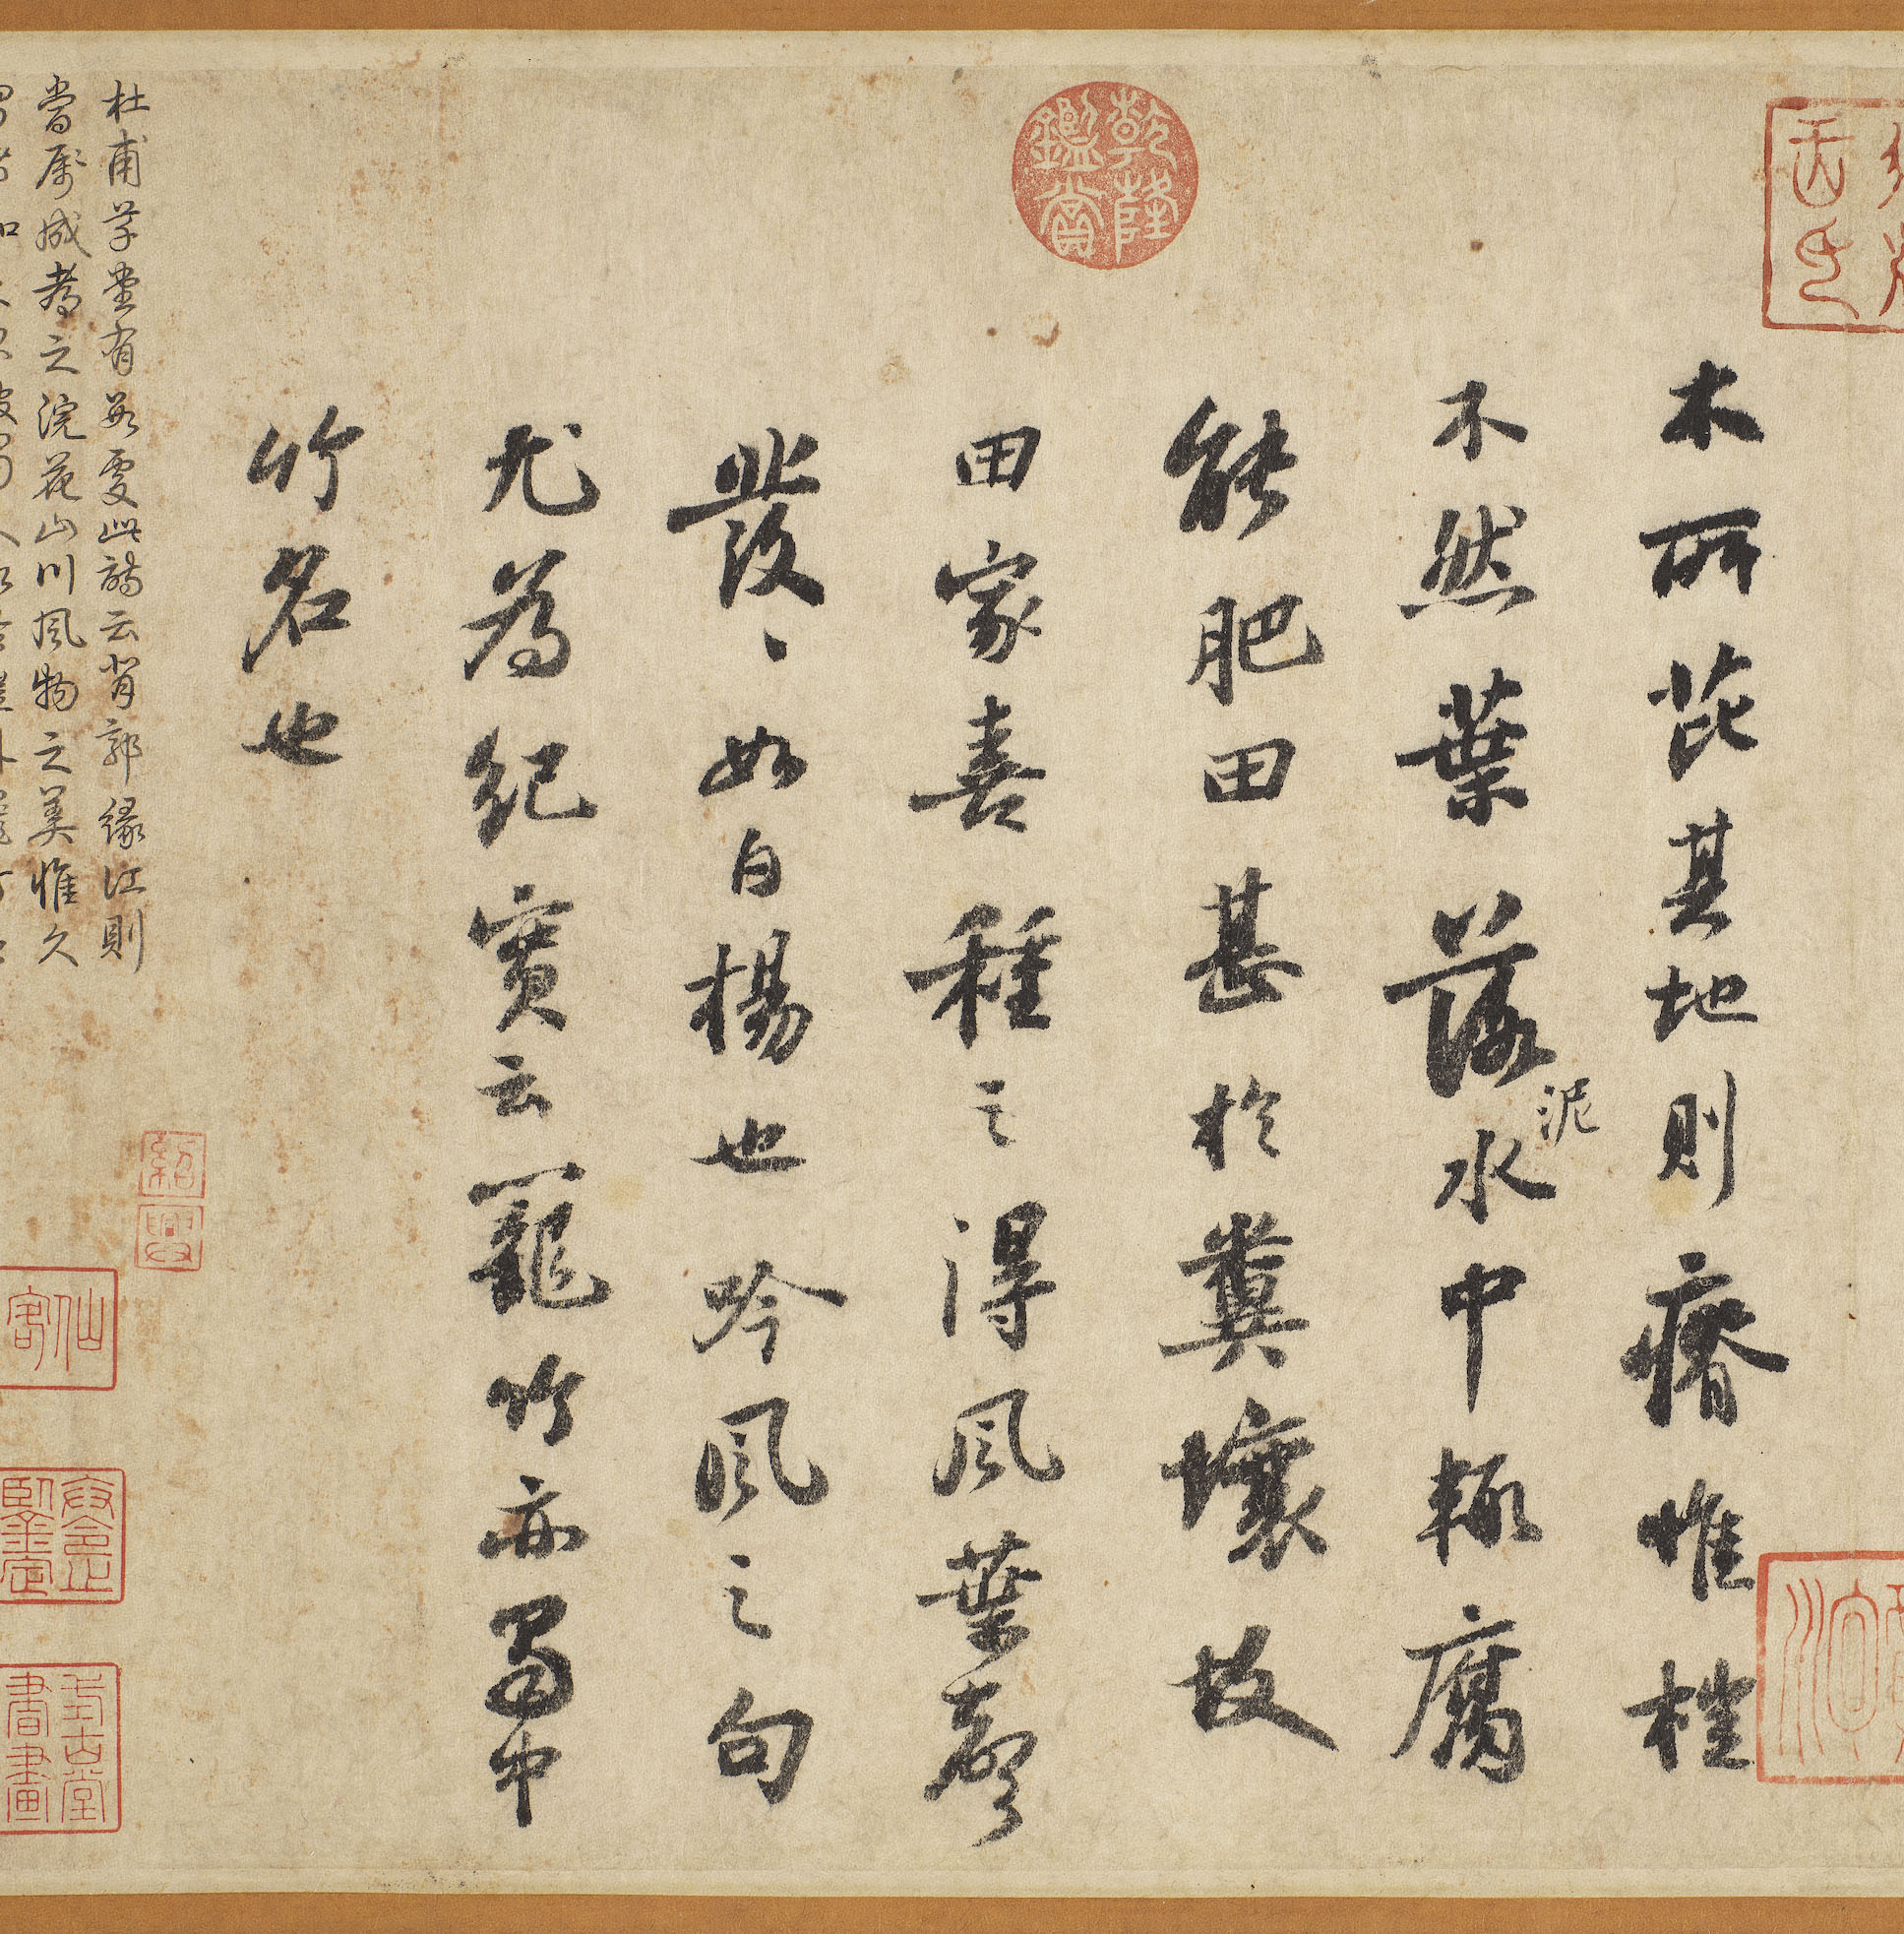 木所芘其地則瘠惟榿
不然葉落泥水中輒腐
能肥田甚於糞壤故
田家喜種之得風葉聲
發〻如白楊也吟風之句
尤為紀實云籠竹亦蜀中
竹名也
杜甫草堂有數處此詩云背郭緣江則
當厲成都之浣花山川風物之美惟久
乾隆鑑賞
紹興
仙客
安令
鑒定
考古堂
書畫